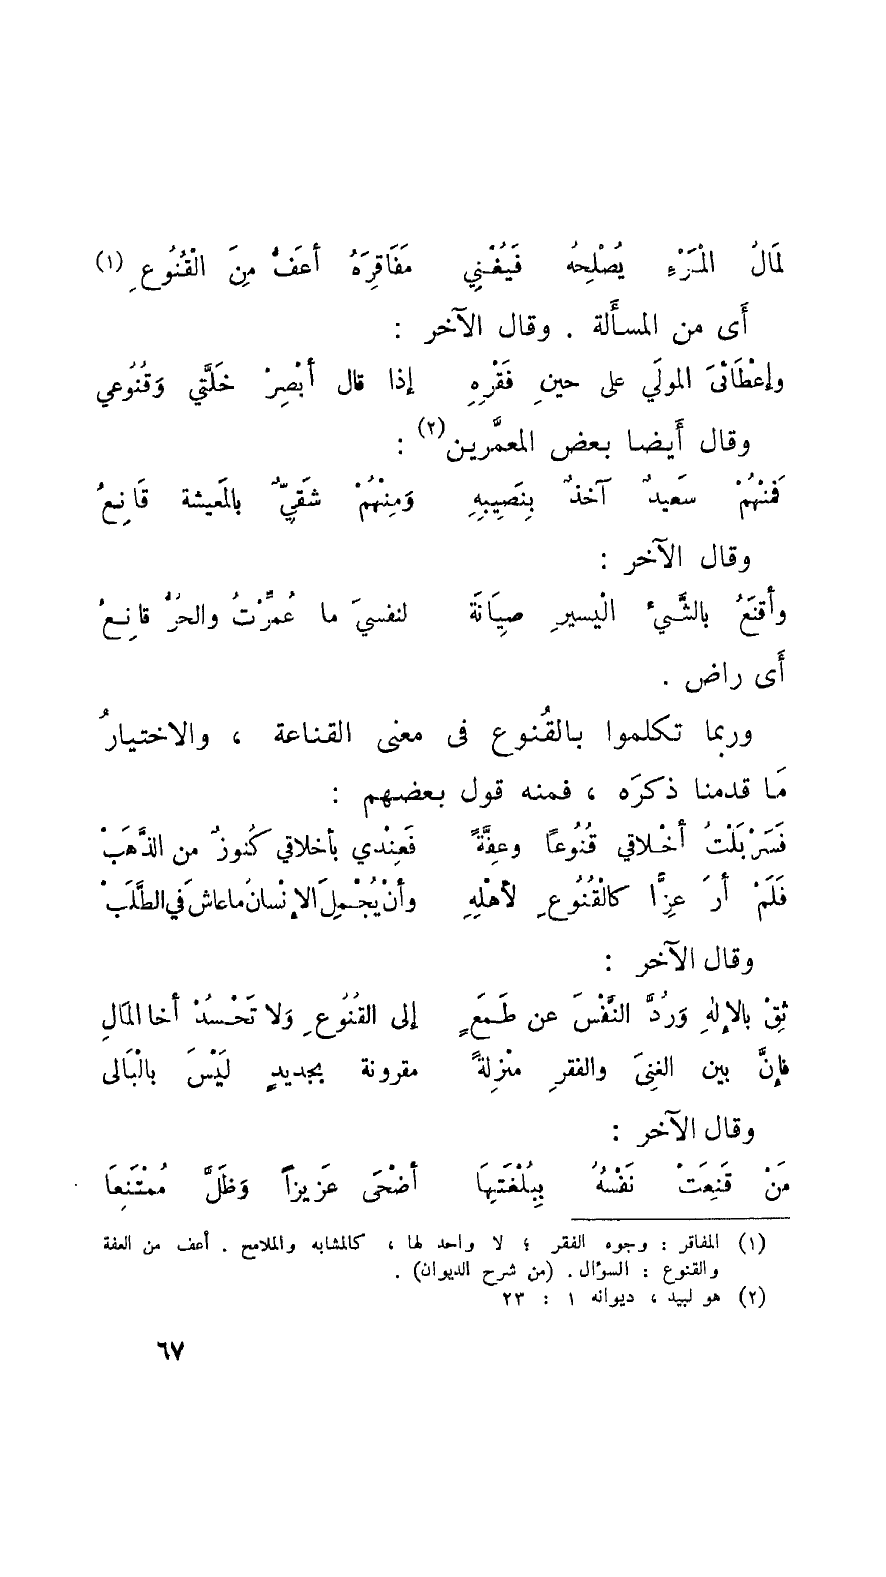 لَمَالُ الْمَرْءِ يُصْلِحِهُ فَيُغْنِي مَفَاقِرَهُ أعَفُّ مِنَ الْقُنُوعِ (١)
أَى من المسأَلة . وقال الآخر :
وإعْطَائىَ المولَي على حينِ فَقْرِهِ إذا قال أبْصِرْ خَلَّتي وَقُنُوعي
وقال أَيضا بعض المعمَّرين(٢) :
فَمنْهُمْ سَعيدٌ آخذٌ بِنَصِيبِهِ وَمِنْهُمْ شَقيٌّ بالمَعيشة قَانِعُ
وقال الآخر :
وأقنَعُ بالشَّيءِ الْيسيرِ صِيَانَةً لنفسيَ ما عُمِّرْتُ والحُرُّ قانِعُ
أَى راض .
وربما تكلموا بالقُنوع فى معنى القناعة ، والاختيارُ
مَا قدمنا ذكرَه ، فمنه قول بعضهم :
فَسَرْبَلْتُ أخْلاقي قُنُوعًا وعفِةًَّ فَعِنْدي بأخلاقي كُنوزٌ من الذَّهَبْ
فَلَمْ أرَ عزِاًّ كالْقُنُوعِ لأهْلِهِ وأنْ يُجْملَ الإنْسانُ ماعاش في الطَّلَبْ
وقال الآخر :
ثِقْ بالإلٰهِ وَرُدَّ النَّفْسَ عن طَمَعٍ إلى القُنُوعِ وَلا تَحْسُدْ أخا المَالِ
فإنَّ بين الغِنىَ والفقرِ منْزلةً مقرونة بجديدٍ لَيْسَ بالْبَالى
وقال الآخر :
مَنْ قَنِعَتْ نَفْسُهُ بِبُلْغَتِهَا أضْحَى عَزيزاً وَظَلَّ مُمْتَنِعَا
(١) المفاقر : وجوه الفقر ؛ لا واحد لها ، كالمشابه والملامح . أعف من العفة
والقنوع : السؤال . (من شرح الديوان) .
(٢) هو لبيد ، ديوانه ١ : ٢٣
٦٧